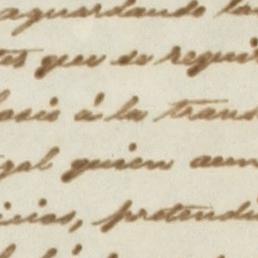 aguardando la
tes que se requi
á la trans
gal quien aun
icios, pretendi